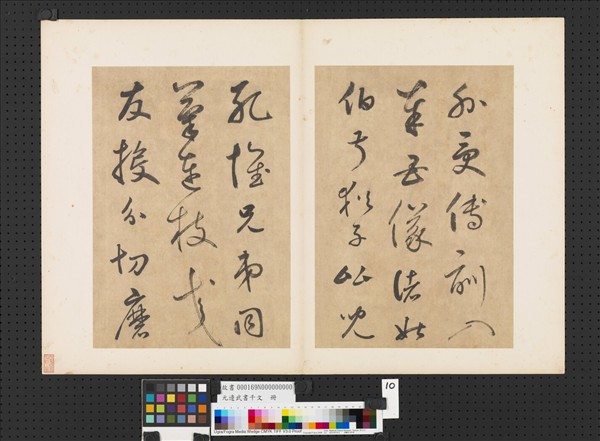 外受傅訓入
奉母儀諸姑
伯叔猶子比兒
孔懷兄弟同
氣連枝交
友投分切磨
10
故書 000169N000000000
元邊武書千文 冊